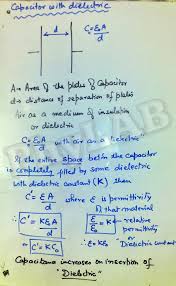 Capacitor with dielectric
d
C = ε₀A/d
A → Area of the plates of Capacitor
d → distance of separation of plates
Air as a medium of insulation
or dielectric
C = ε₀A/d with air as a "dielectric"
If the entire space betn the capacitor
is completely filled by some dielectric
with dielectric constant (K) then
C' = εA/d where ε is permittivity of that material
C' = Kε₀A/d
ε/ε₀ = K ← relative permittivity
or
or C' = KC₀
∴ ε = Kε₀
Dielectric constant
Capacitance increases on insertion of
"Dielectric"